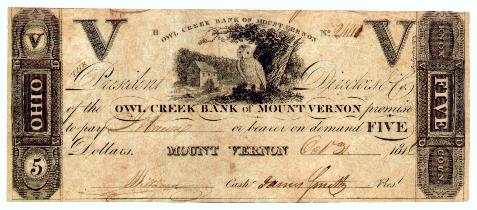 V
V
OWL CREEK BANK OF MOUNT VERNON
V
OHIO
5
B
No.
The President Directors & Co.
of the OWL CREEK BANK of MOUNT VERNON promise
to pay or bearer on demand FIVE
Dollars. MOUNT VERNON Oct 21 181
Cashr James Smith Prest
FIVE